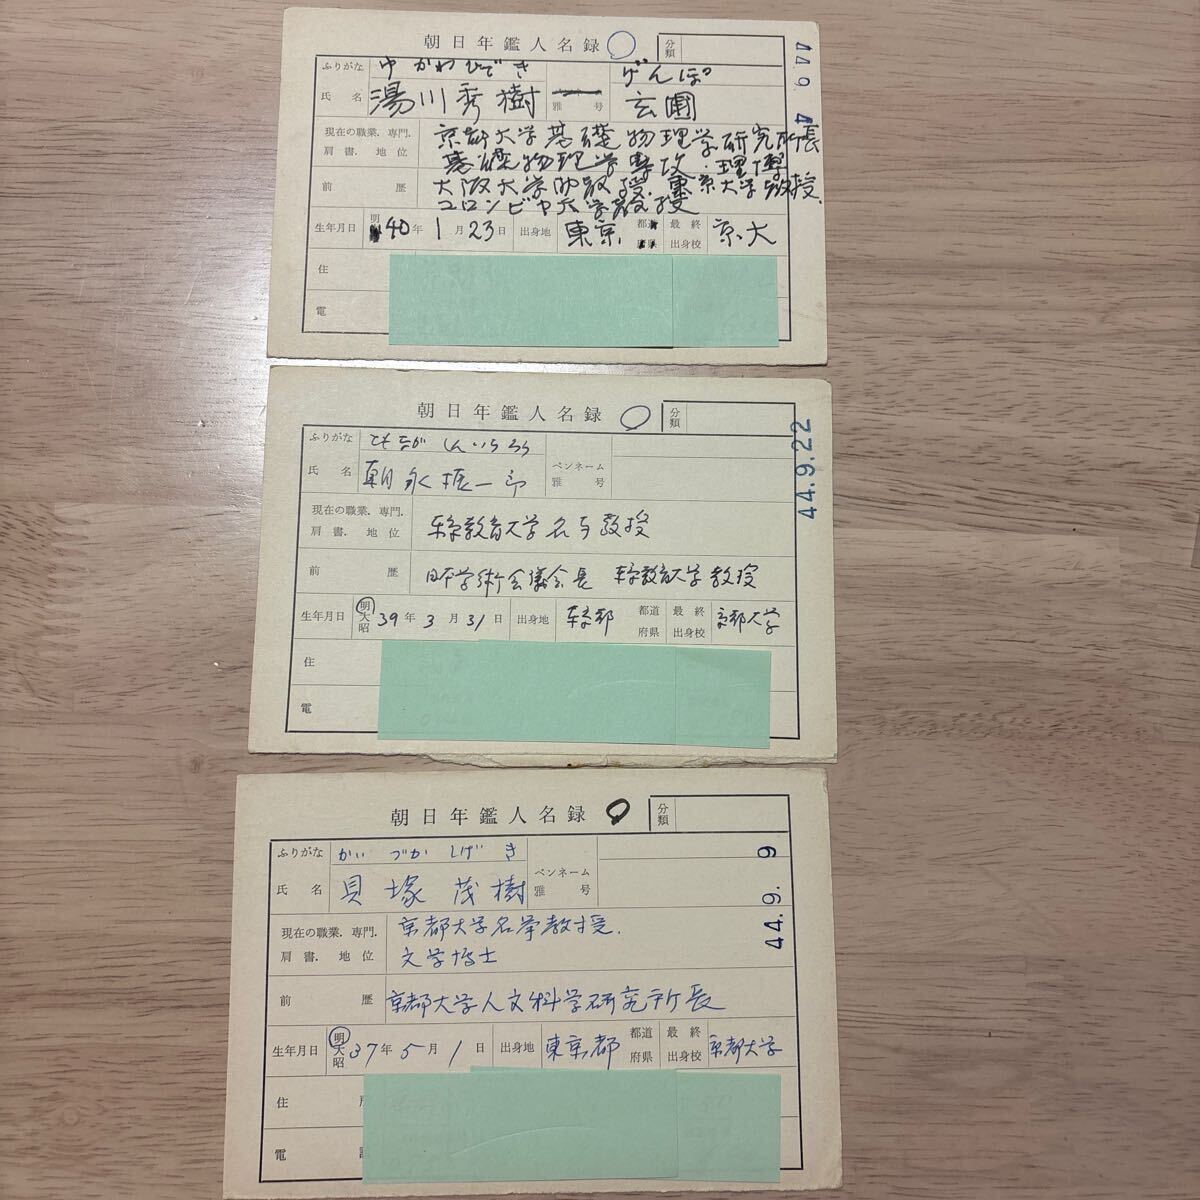 朝日年鑑人名録
分類
44.9.4
ふりがな ゆかわひでき げんぽ
氏名 湯川秀樹 雅号 玄圃
現在の職業.専門.肩書.地位 京都大学基礎物理学研究所長
基礎物理学専攻・理博
前歴 大阪大学助教授.東京大学教授.
コロンビヤ大学教授
生年月日 明 40年1月23日 出身地 東京 都 最終出身校 京大
住
電
朝日年鑑人名録
分類
44.9.22
ふりがな ともながしんいちろう
氏名 朝永振一郎 ペンネーム雅号
現在の職業.専門.肩書.地位 東京教育大学名誉教授
前歴 日本学術会議会長 東京教育大学教授
生年月日 明大昭 39年3月31日 出身地 東京都 都道府県 最終出身校 京都大学
住
電
朝日年鑑人名録
分類
44.9.9
ふりがな かいづかしげき
氏名 貝塚茂樹 ペンネーム雅号
現在の職業.専門.肩書.地位 京都大学名誉教授.
文学博士
前歴 京都大学人文科学研究所長
生年月日 明大昭 37年5月1日 出身地 東京都 都道府県 最終出身校 京都大学
住
電